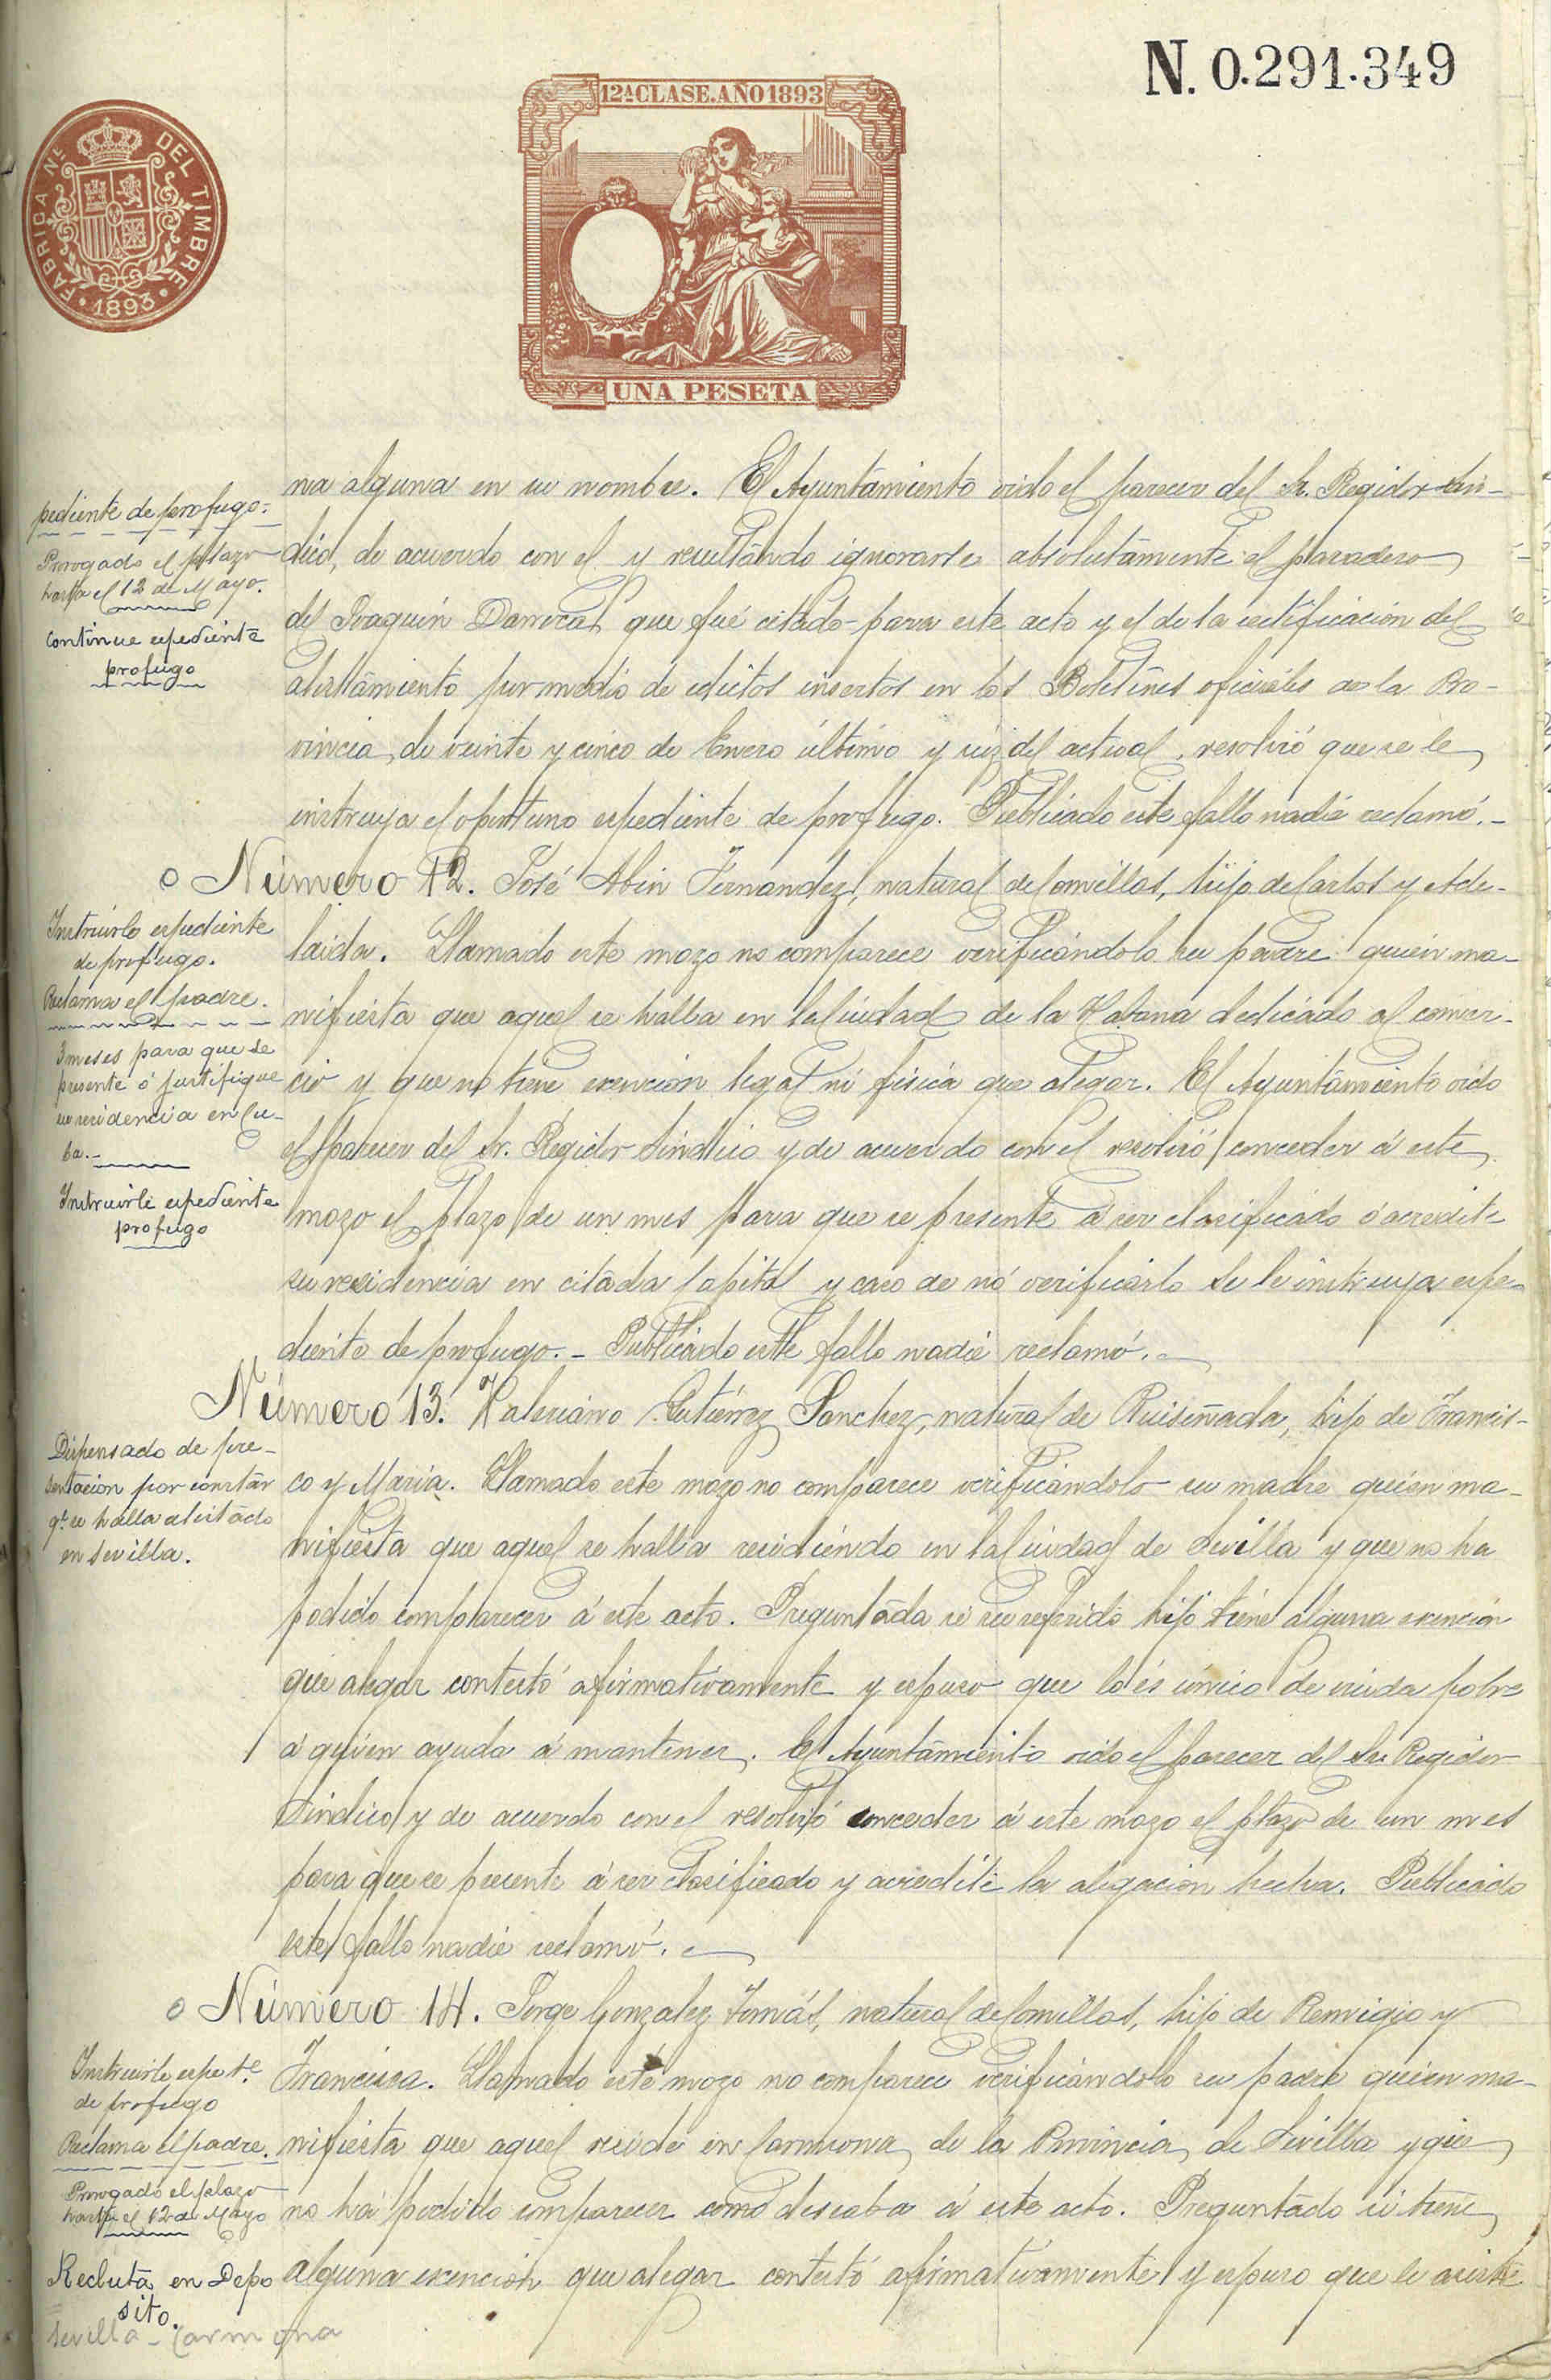 N. 0.291.349
12ª CLASE. AÑO 1893
FABRICA Nˡ DEL TIMBRE
1893
UNA PESETA
pediente de profugo.
Prorogado el plazo
hasta el 12 de Mayo.
Continue espediente
profugo
na alguna en su nombre. El Ayuntamiento oido el parecer del Sr. Regidor Sin-
dico, de acuerdo con el y resultando ignorarse absolutamente el paradero
del Joaquín que fué citado para este acto y el de la rectificación del
alistamiento por medio de edictos insertos en los Boletines oficiales de la Pro-
vincia, de veinte y cinco de Enero último y seis del actual, resolvió que se le
instruya el oportuno espediente de profugo. Publicado este fallo nadie reclamó.-
Instruirle espediente
de profugo.
Reclama el padre.
3 meses para que se
presente ó justifique
su residencia en Cu-
ba.-
Instruirle espediente
profugo
Número 12. José Abin Fernandez, natural de Comillas, hijo de Carlos y Ade-
laida. Llamado este mozo no comparece verificándolo su padre quien ma-
nifiesta que aquel se halla en la Ciudad de la Habana dedicado al comer-
cio y que no tiene exención legal ni física que alegar. El Ayuntamiento oido
el parecer del Sr. Regidor Sindico y de acuerdo con el resolvió conceder á este
mozo el plazo de un mes para que se presente á ser clasificado ó acredite
su residencia en citada Capital y caso de nó verificarlo se le instruya espe-
diente de profugo.- Publicado este fallo nadie reclamó.
Dispensado de pre-
sentacion por constar
q.e se halla alistado
en Sevilla.
Número 13. Valeriano Gutiérrez Sanchez, natural de Ruiseñada, hijo de Francis-
co y María. Llamado este mozo no comparece verificándolo su madre quien ma-
nifiesta que aquel se halla residiendo en la Ciudad de Sevilla y que no ha
podido comparecer á este acto. Preguntada si su referido hijo tiene alguna exención
que alegar contestó afirmativamente y espuso que lo és único de viuda pobre
á quien ayuda á mantener. El Ayuntamiento oido el parecer del Sr. Regidor
Sindico y de acuerdo con el resolvió conceder á este mozo el plazo de un mes
para que se presente á ser clasificado y acredite la alegación hecha. Publicado
este fallo nadie reclamó.
Instruirle espet.e
de profugo
Reclama el padre.
Prorogado el plazo
hasta el 12 de Mayo
Recluta en Depo
sito.
Sevilla - Carmona
Número 14. Jorge Gonzalez Tomás, natural de Comillas, hijo de Remigio y
Francisca. Llamado este mozo no comparece verificándolo su padre quien ma-
nifiesta que aquel reside en Carmona, de la Provincia de Sevilla y que
no há podido comparecer como deseaba á este acto. Preguntado si tiene
alguna exención que alegar contestó afirmativamente y espuso que le asiste